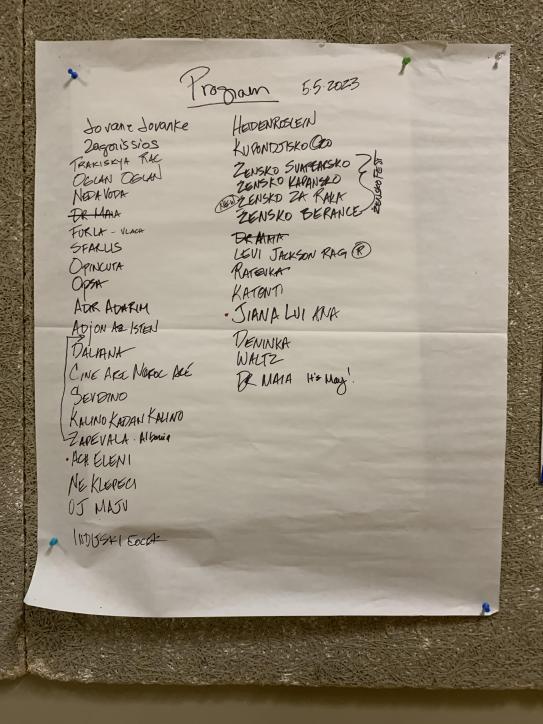 Program 5.5.2023
Jovane Jovanke
Zagorissios
TRAKISKYA RAC
OGLAN OGLAN
NEDA VODA
DR MAIA
FURLA - VLACH
SFARLIS
OPINCUTA
OPSA
ADIR ADARIM
ADJON AZ ISTEN
DALIANA
CINE ARE NOROC ARE
SEVDINO
KALINO KADAN KALINO
ZAPEVALA - Albania
• ACH ELENI
NE KLEPECI
OJ MAJU
HEIDENROSLEIN
KUPONDJISKO ORO
ZENSKO SVATBARSKO
ZENSKO KAPANSKO
NEW ZENSKO ZA RAKA
ZENSKO BERANCE
DR MAIA
LEVI JACKSON RAG R
RATEVKA
KATENTI
• JIANA LUI ANA
DENINKA
WALTZ
DR MAIA It's May!